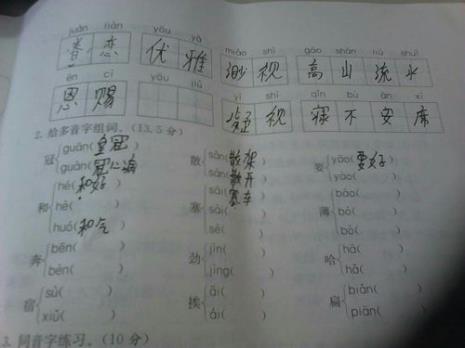 juàn liàn yōu yǎ
眷恋 优雅 miǎo shì gāo shān liú shuǐ
渺视 高山流水
ēn cì yōu jiǔ
恩赐 yí shì qǐn bù ān xí
视 寝不安席
2. 给多音字组词。(13.5分)
冠 guān(皇冠) 散 sǎn(散架) 要 yāo(要好)
guàn( ) sàn(散开) yào( )
和 hé(和好) 塞 sài(赛车) 薄 báo( )
hè( ) sāi( ) bó( )
huó(和气) sè( ) bò( )
奔 bēn( ) 劲 jìn( ) 哈 hā( )
bèn( ) jìng( ) hǎ( )
宿 sù( ) 挨 āi( ) 扁 biǎn( )
xiǔ( ) ái( ) piān( )
3. 同音字练习。(10分)